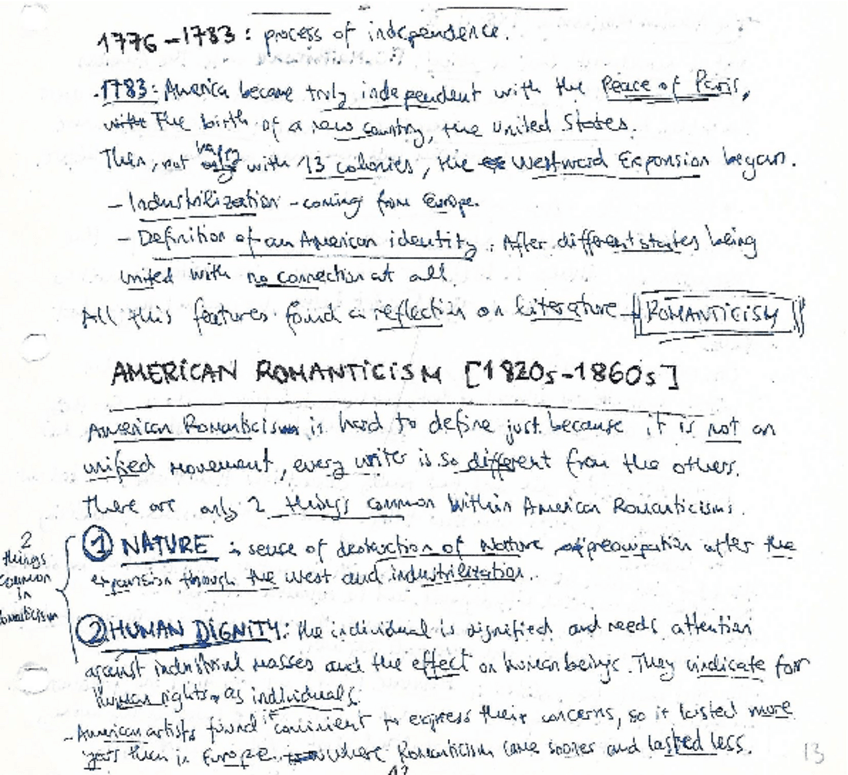 1776-1783: process of independence.
.1783: America became truly independent with the Peace of Paris,
The birth of a new country, the United States.
Then, not happy with 13 colonies, the Westward Expansion began.
- Industrilization - coming from Europe.
- Definition of an American identity. After different states being
united with no connection at all.
All this features found a reflection on literature → ROMANTICISM
AMERICAN ROMANTICISM [1820s-1860s]
American Romanticism is hard to define just because it is not an
unified movement, every writer is so different from the others.
There are only 2 things common within American Romanticisms.
2 things common in
① NATURE: sense of destruction of Nature, preocupation after the
expansion through the west and industrilization.
② HUMAN DIGNITY: the individual is dignified and needs attention
against industrial masses and the effect on human beings. They vindicate for
human rights as individuals.
- American artists found it convinient to express their concerns, so it lasted more
years than in Europe where Romanticism came sooner and lasted less.
13